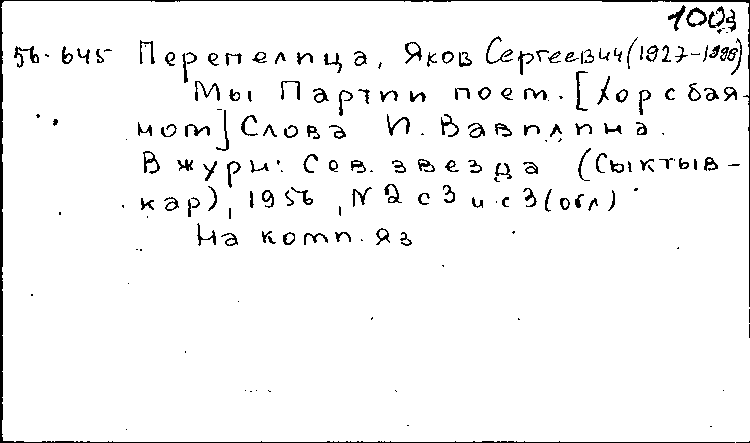 1003
56-645 Перепелица, Яков Сергеевич (1927-1990)
Мы Партии поем. [Хор с бая-
ном] Слова И. Вавилина.
В журн: Сев. звезда (Сыктыв-
кар), 1956, N 2 с 3 и с 3 (обл)
На коми. яз